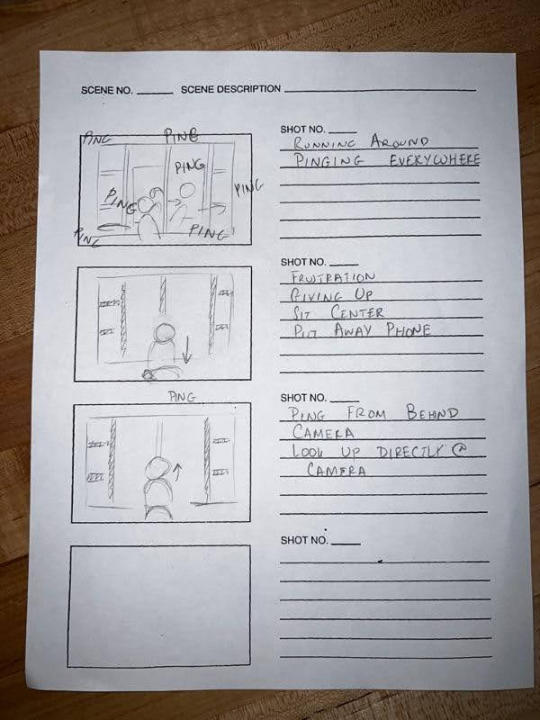 SCENE NO. ______ SCENE DESCRIPTION ______
PING PING
PING
PING PING
PING PING
SHOT NO. ____
RUNNING AROUND
PINGING EVERYWHERE
SHOT NO. ____
FRUTRATION
GIVING UP
SIT CENTER
PUT AWAY PHONE
PING
SHOT NO. ____
PING FROM BEHIND
CAMERA
LOOK UP DIRECTLY @
CAMERA
SHOT NO. ____